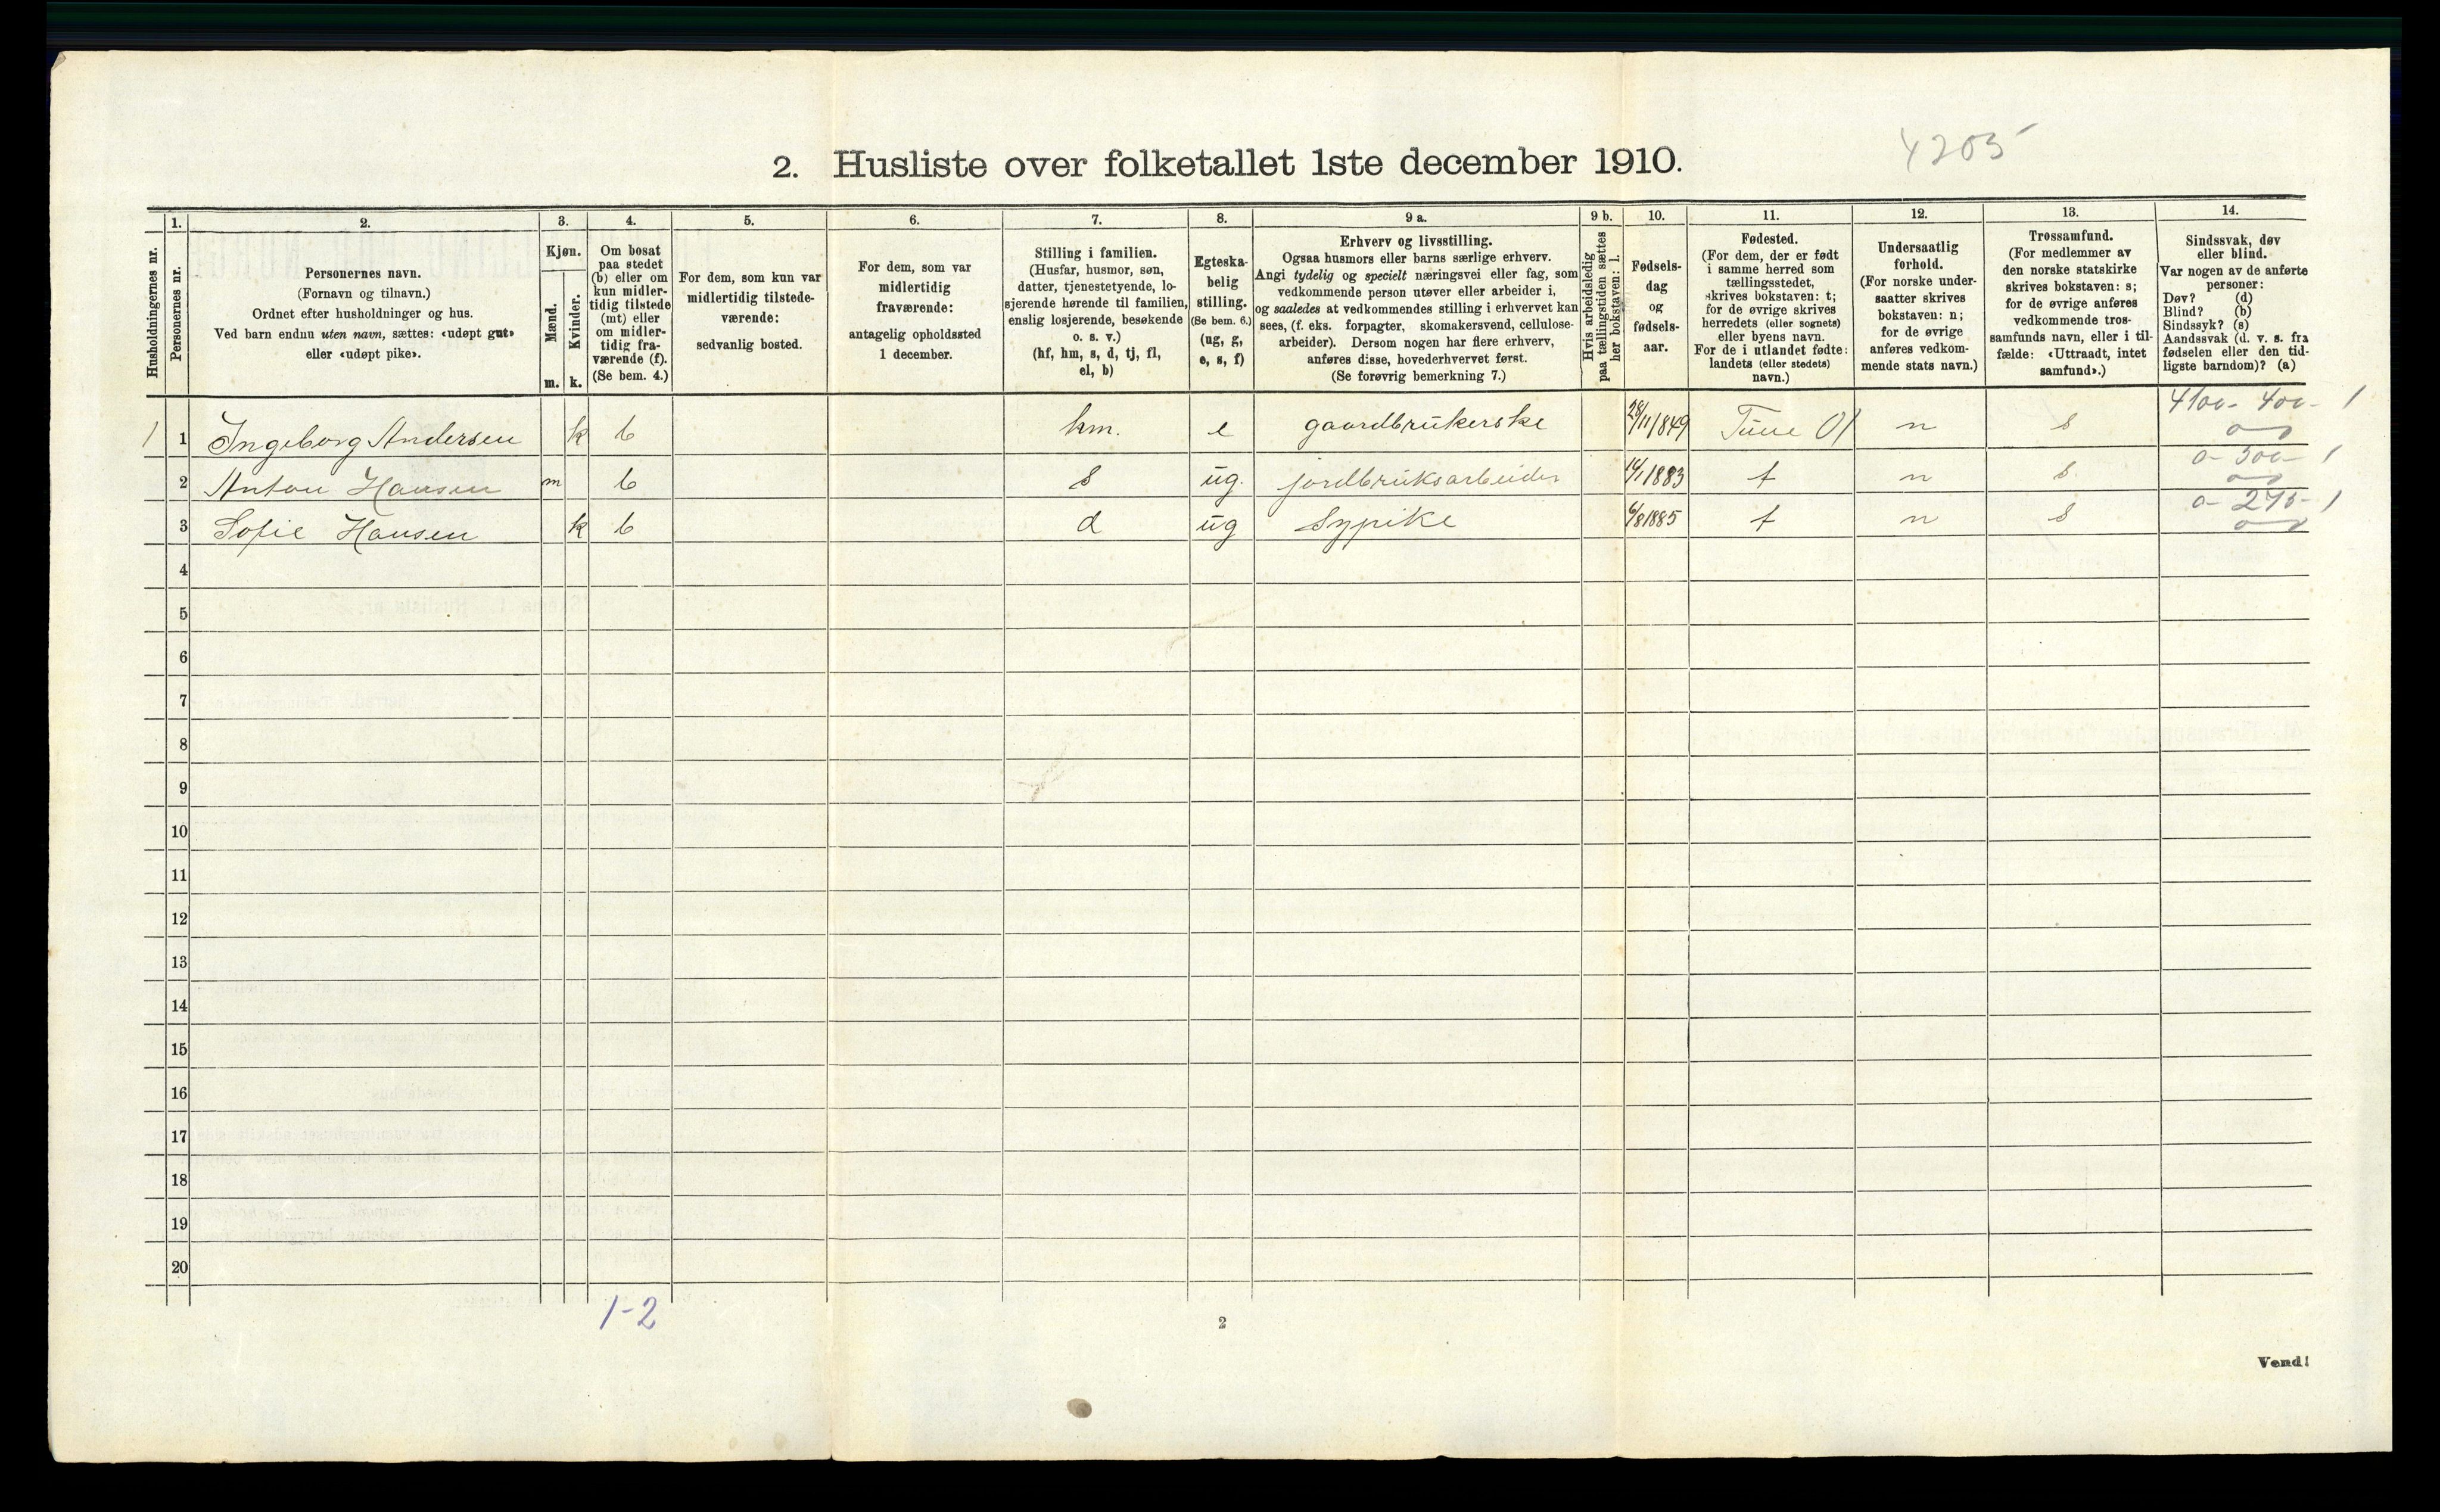 4205
2. Husliste over folketallet 1ste december 1910.
Husholdningernes nr.
1.
Personernes nr.
2.
Personernes navn.
(Fornavn og tilnavn.)
Ordnet efter husholdninger og hus.
Ved barn endnu uten navn, sættes: «udøpt gut»
eller «udøpt pike».
3.
Kjøn.
Mænd.
Kvinder.
m. k.
4.
Om bosat
paa stedet
(b) eller om
kun midler-
tidig tilstede
(mt) eller
om midler-
tidig fra-
værende (f).
(Se bem. 4.)
5.
For dem, som kun var
midlertidig tilstede-
værende:
sedvanlig bosted.
6.
For dem, som var
midlertidig
fraværende:
antagelig opholdssted
1 december.
7.
Stilling i familien.
(Husfar, husmor, søn,
datter, tjenestetyende, lo-
sjerende hørende til familien,
enslig losjerende, besøkende
o. s. v.)
(hf, hm, s, d, tj, fl,
el, b)
8.
Egteska-
belig
stilling.
(Se bem. 6.)
(ug, g,
e, s, f)
9 a.
Erhverv og livsstilling.
Ogsaa husmors eller barns særlige erhverv.
Angi tydelig og specielt næringsvei eller fag, som
vedkommende person utøver eller arbeider i,
og saaledes at vedkommendes stilling i erhvervet kan
sees, (f. eks. forpagter, skomakersvend, cellulose-
arbeider). Dersom nogen har flere erhverv,
anføres disse, hovederhvervet først.
(Se forøvrig bemerkning 7.)
9 b.
Hvis arbeidsledig
paa tællingstiden sættes
her bokstaven: l.
10.
Fødsels-
dag
og
fødsels-
aar.
11.
Fødested.
(For dem, der er født
i samme herred som
tællingsstedet,
skrives bokstaven: t;
for de øvrige skrives
herredets (eller sognets)
eller byens navn.
For de i utlandet fødte:
landets (eller stedets)
navn.)
12.
Undersaatlig
forhold.
(For norske under-
saatter skrives
bokstaven: n;
for de øvrige
anføres vedkom-
mende stats navn.)
13.
Trossamfund.
(For medlemmer av
den norske statskirke
skrives bokstaven: s;
for de øvrige anføres
vedkommende tros-
samfunds navn, eller i til-
fælde: «Uttraadt, intet
samfund».)
14.
Sindssvak, døv
eller blind.
Var nogen av de anførte
personer:
Døv? (d)
Blind? (b)
Sindssyk? (s)
Aandssvak (d. v. s. fra
fødselen eller den tid-
ligste barndom)? (a)
4100- 400- 1
1 1 Ingeborg Andersen k b hm. e gaardbrukerske 28/11 1849 Tune n s
0- 500- 1
2 Anton Hansen m b s ug. jordbruksarbeider 1883 t n s.
0- 275- 1
3 Sofie Hansen k b d ug Sypike 6/8 1885 t n s
4
5
6
7
8
9
10
11
12
13
14
15
16
17
18
19
20
1-2
2
Vend!